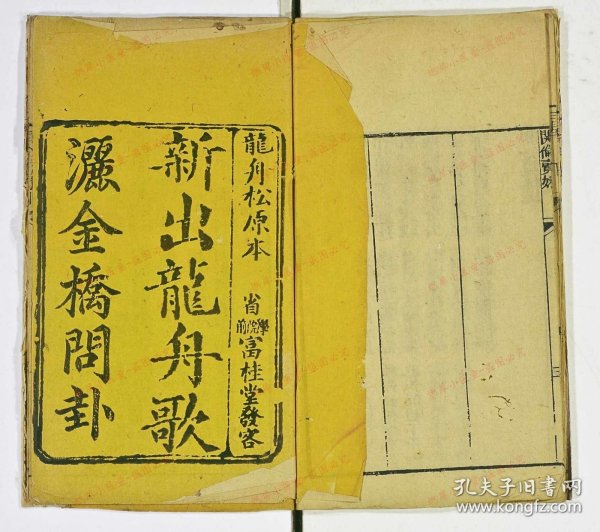 龍舟松原本
省學院前富桂堂發客
新出龍舟歌
灑金橋問卦
孔夫子旧书网
www.kongfz.com